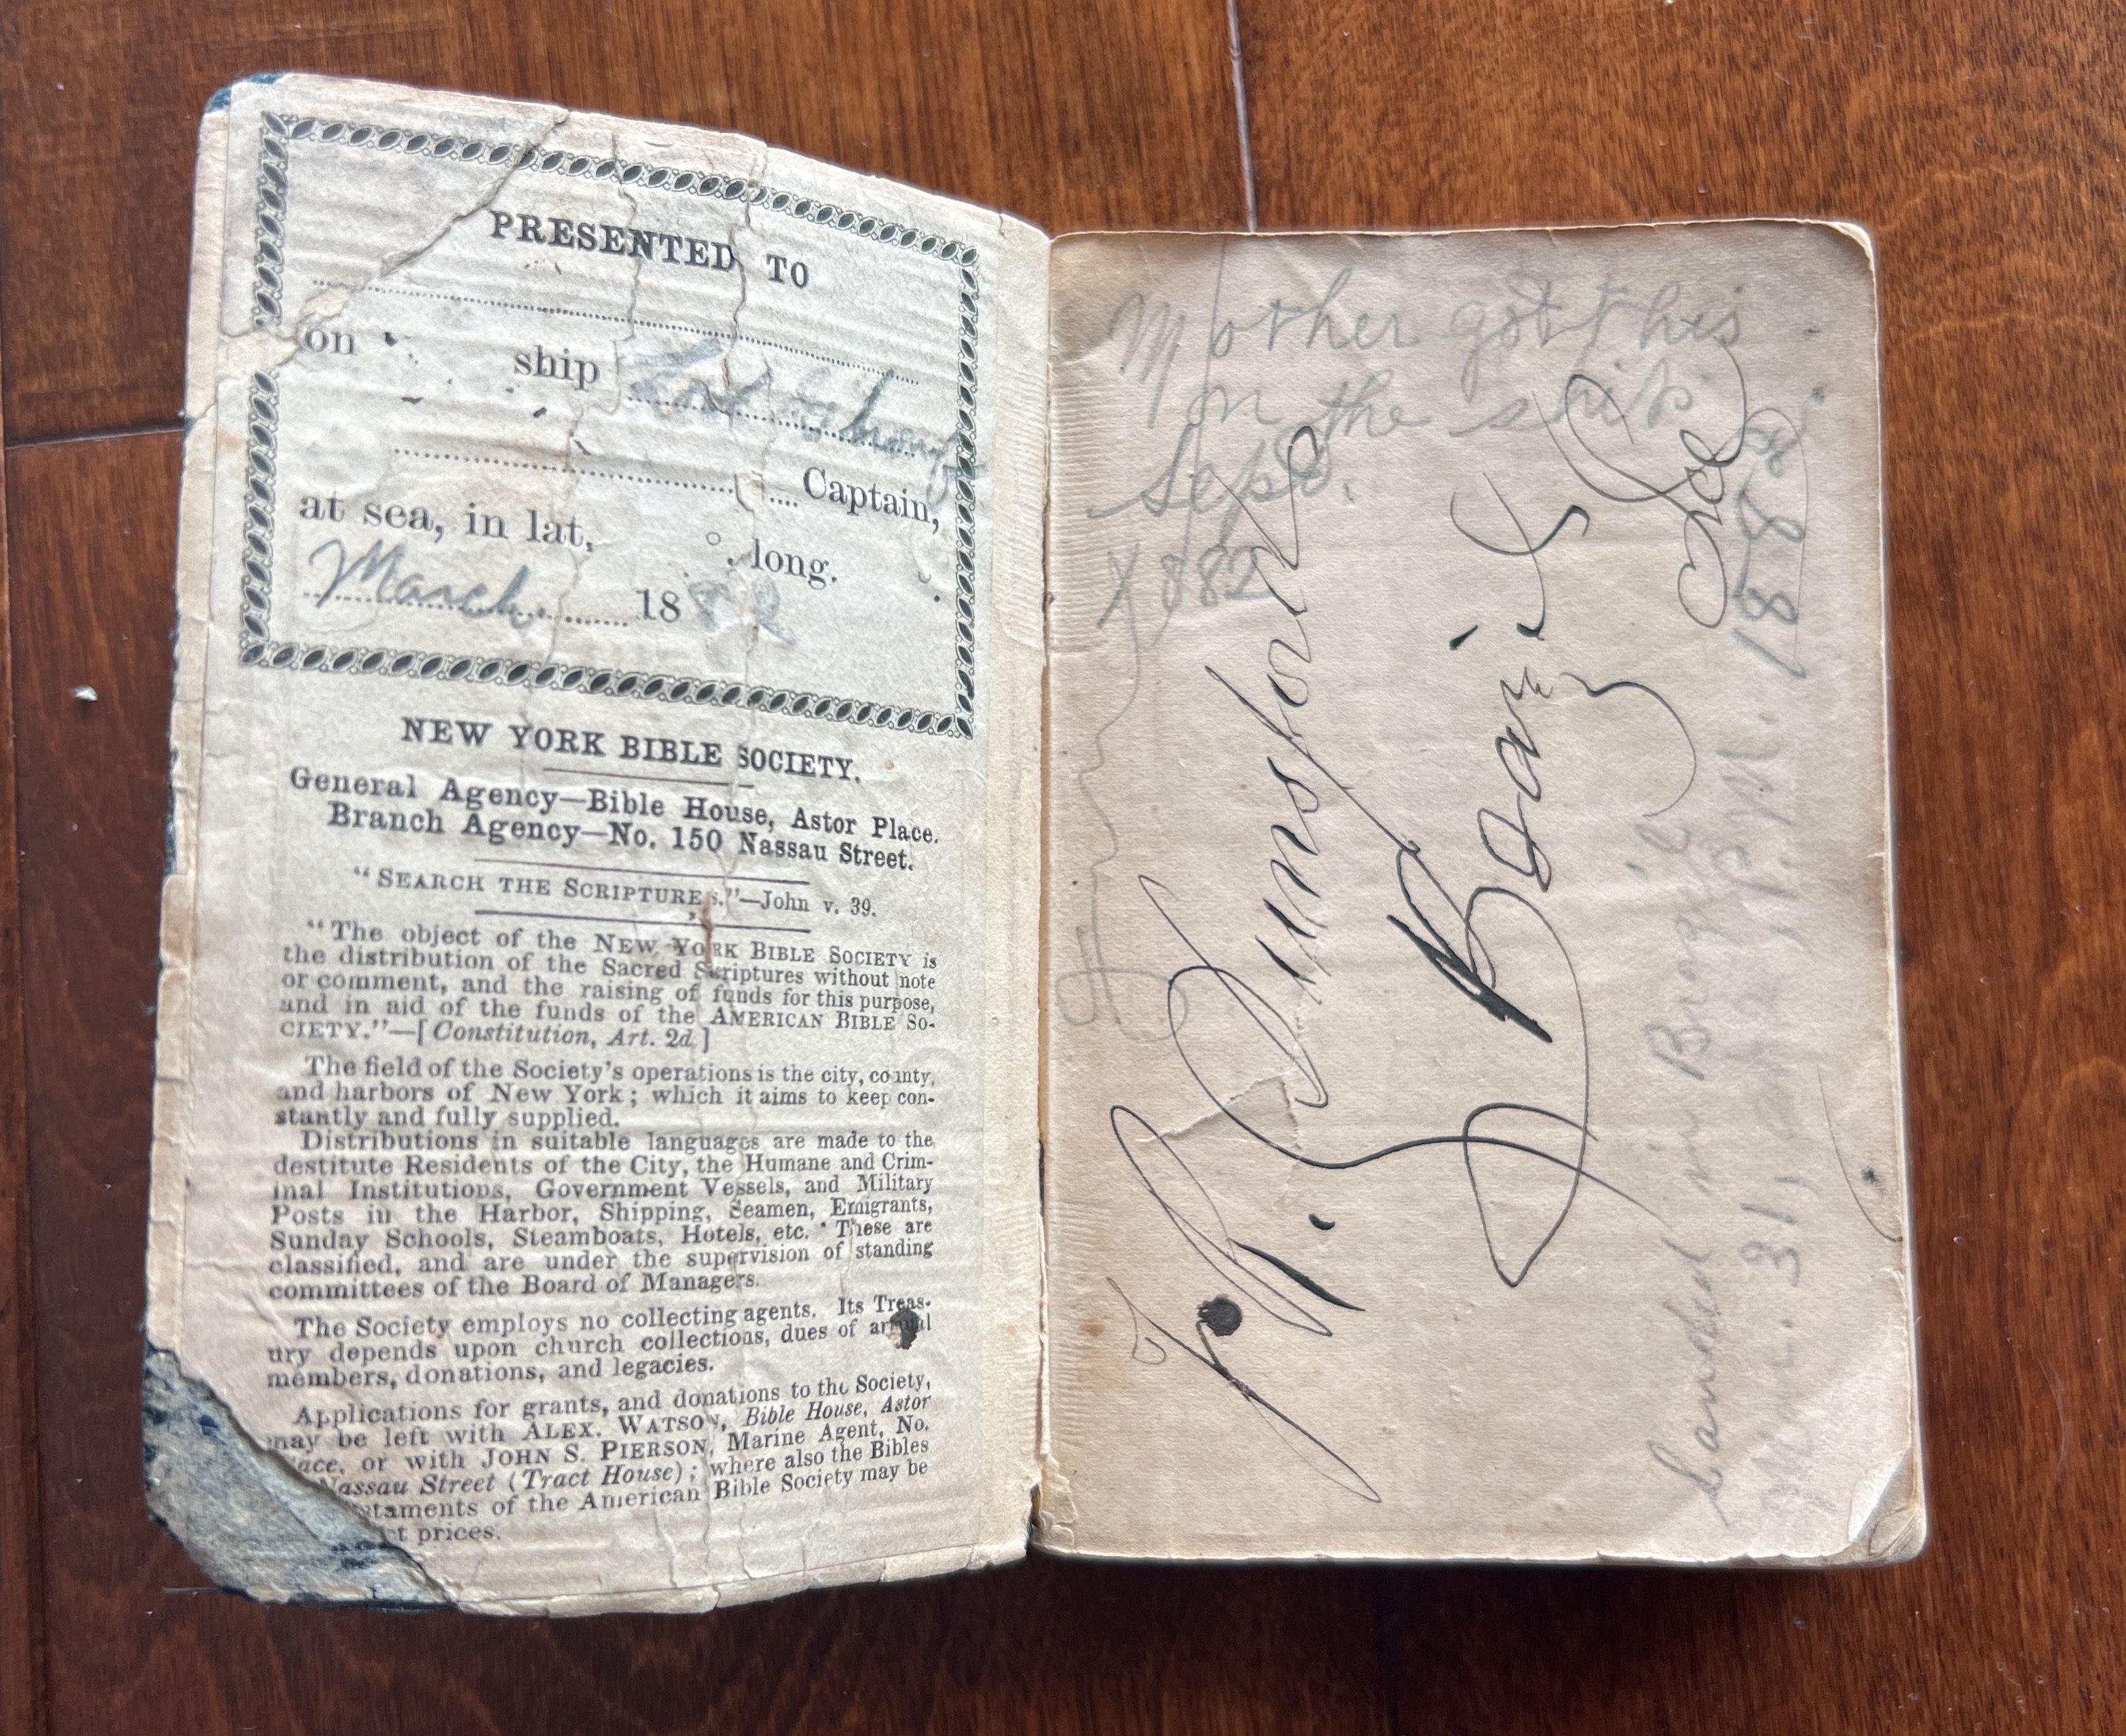 PRESENTED TO
on ship
Captain,
at sea, in lat, °, long.
March 1882
NEW YORK BIBLE SOCIETY.
General Agency—Bible House, Astor Place.
Branch Agency—No. 150 Nassau Street.
"SEARCH THE SCRIPTURES."—John v. 39.
"The object of the NEW YORK BIBLE SOCIETY is
the distribution of the Sacred Scriptures without note
or comment, and the raising of funds for this purpose,
and in aid of the funds of the AMERICAN BIBLE SO-
CIETY."—[Constitution, Art. 2d]
The field of the Society's operations is the city, county,
and harbors of New York; which it aims to keep con-
stantly and fully supplied.
Distributions in suitable languages are made to the
destitute Residents of the City, the Humane and Crim-
inal Institutions, Government Vessels, and Military
Posts in the Harbor, Shipping, Seamen, Emigrants,
Sunday Schools, Steamboats, Hotels, etc. These are
classified, and are under the supervision of standing
committees of the Board of Managers.
The Society employs no collecting agents. Its Treas-
ury depends upon church collections, dues of annual
members, donations, and legacies.
Applications for grants, and donations to the Society,
may be left with ALEX. WATSON, Bible House, Astor
lace, or with JOHN S. PIERSON, Marine Agent, No.
Nassau Street (Tract House); where also the Bibles
taments of the American Bible Society may be
t prices.
Mother got this
on the ship
Sept.
1882
Dunsford
Brazil
Landed in Brazil
31, 1882